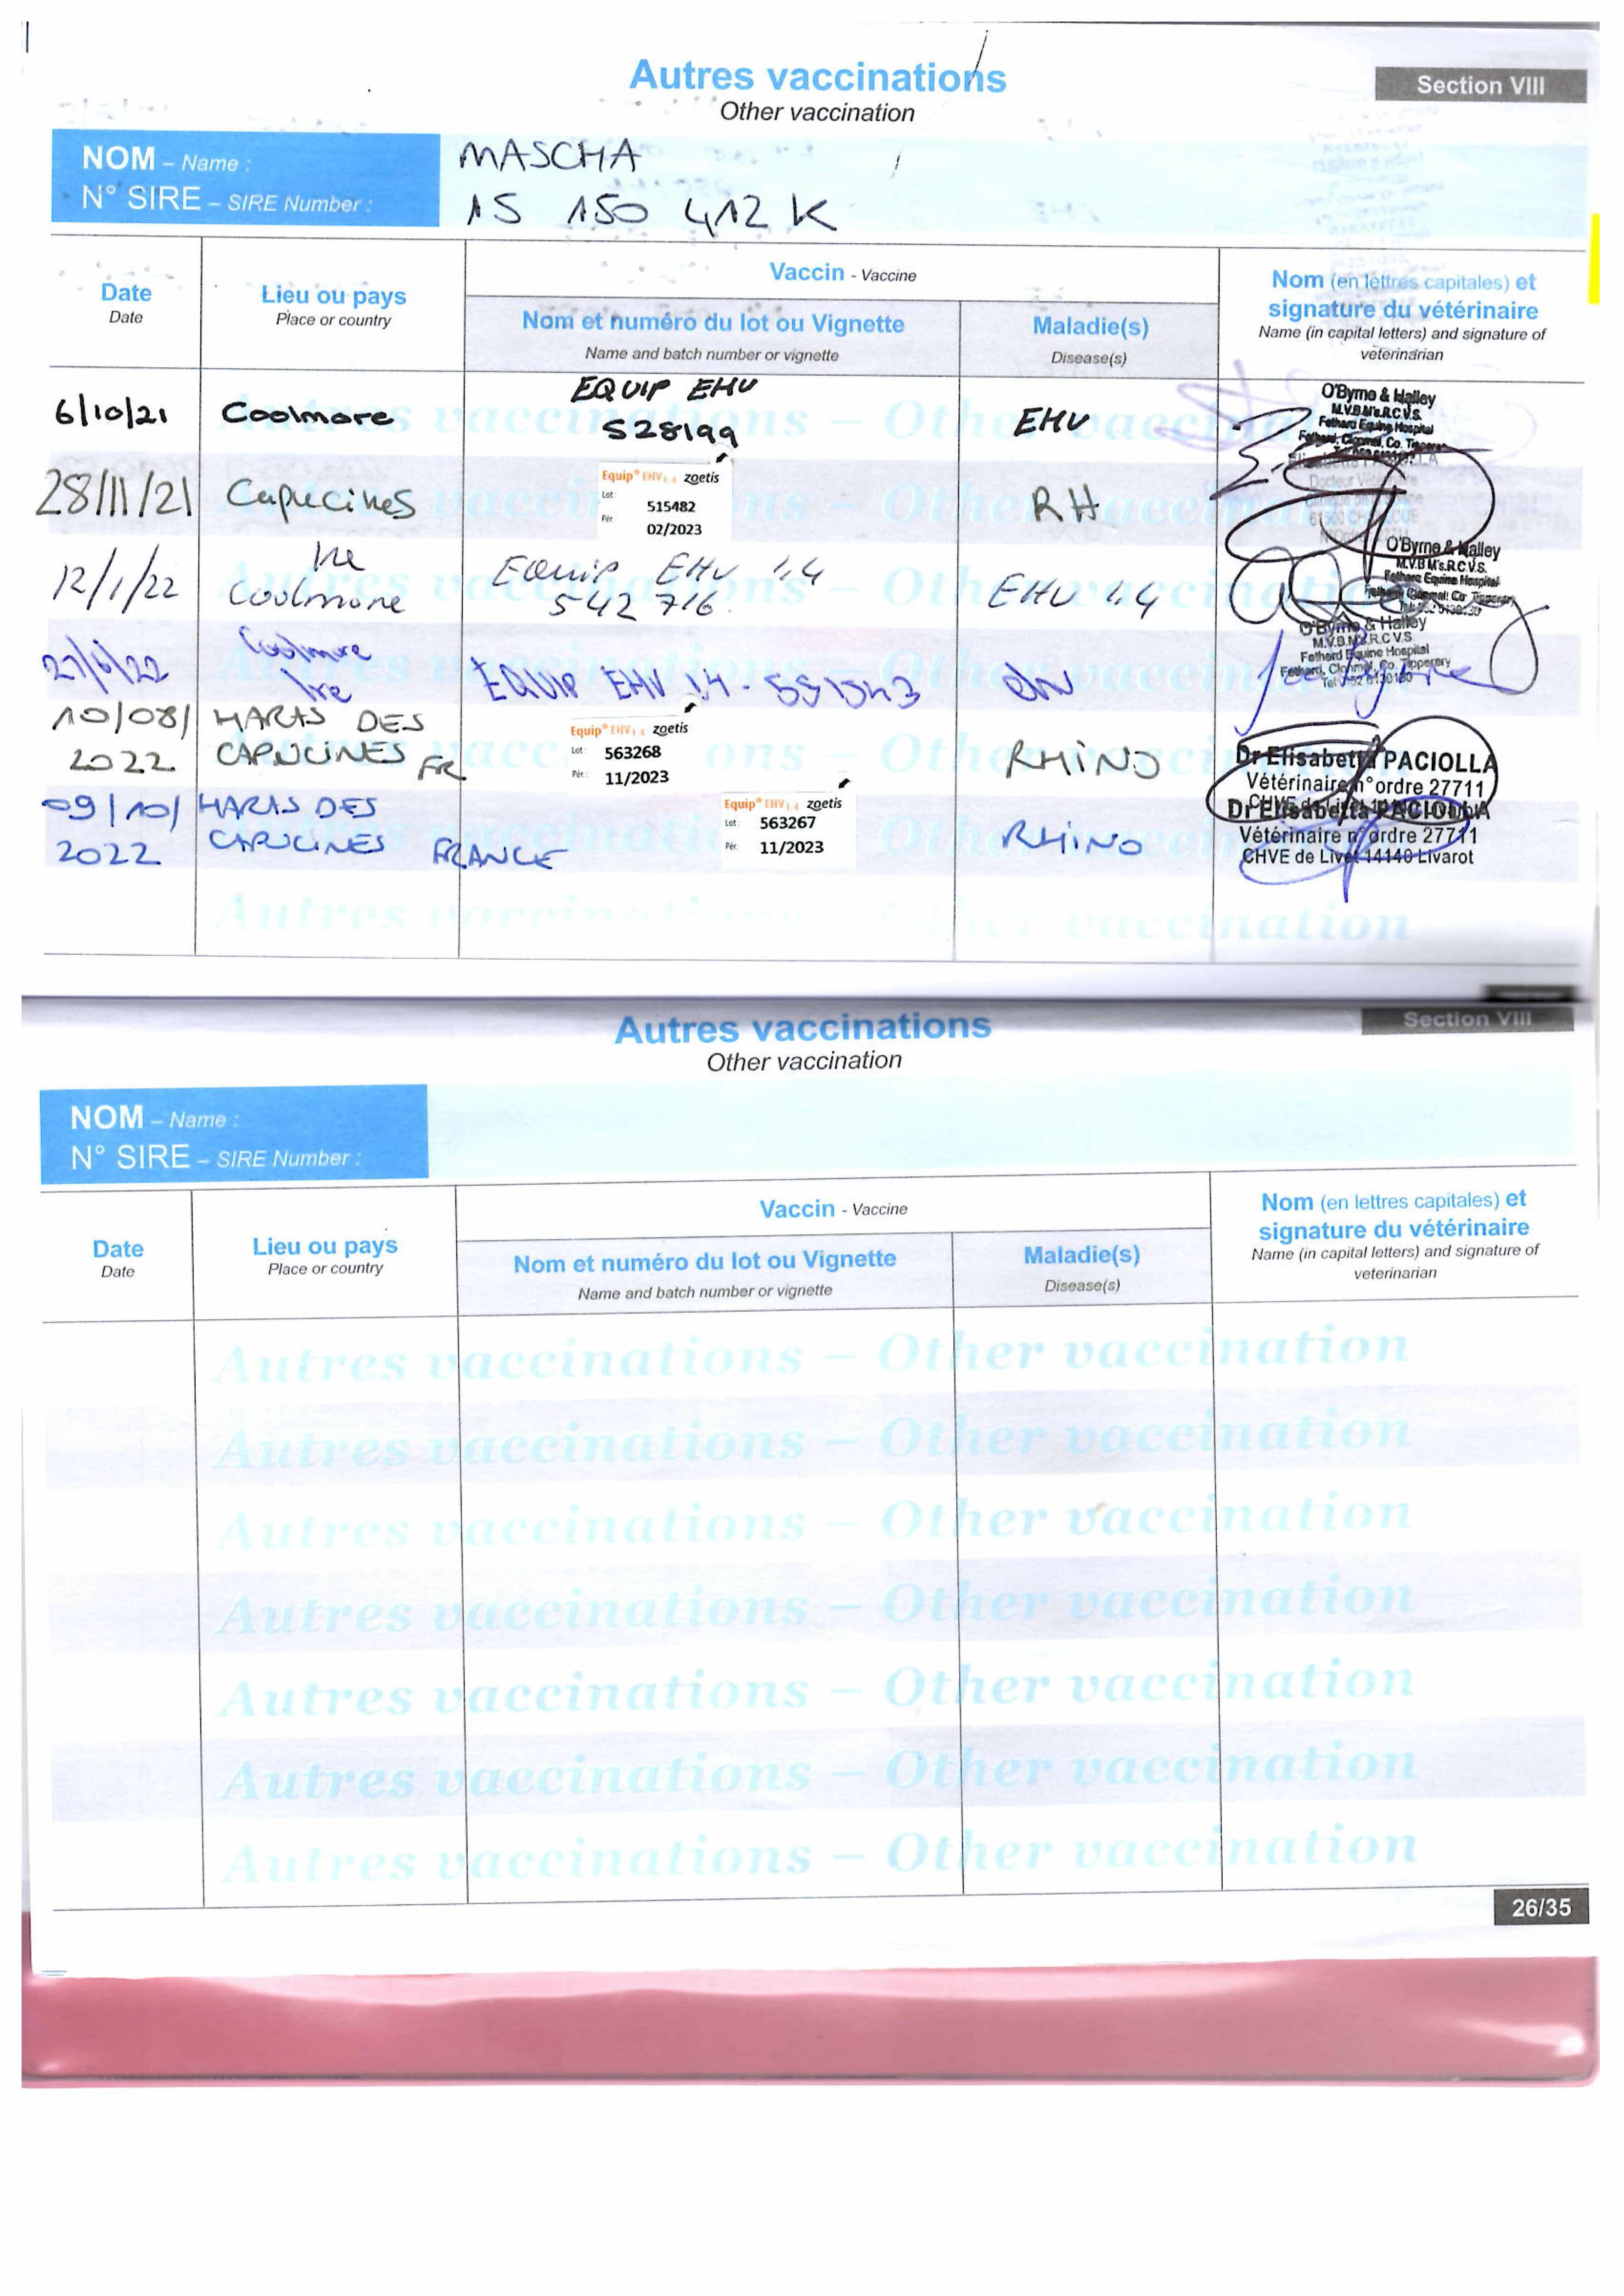 Autres vaccinations
Other vaccination
Section VIII
NOM – Name :
MASCHA
N° SIRE – SIRE Number :
15 150 412 K
Date
Date
Lieu ou pays
Place or country
Vaccin - Vaccine
Nom et numéro du lot ou Vignette
Name and batch number or vignette
Maladie(s)
Disease(s)
Nom (en lettres capitales) et
signature du vétérinaire
Name (in capital letters) and signature of
veterinarian
6/10/21
Coolmore
EQUIP EHV
528199
EHV
O'Byrne & Halley
M.V.B M's.R.C.V.S.
Fethard Equine Hospital
Fethard, Clonmel, Co. Tipperary
28/11/21
Capucines
Equip® EHV 1,4 zoetis
Lot: 515482
Pér. 02/2023
RH
Docteur Vétérinaire
12/1/22
Ire
Coolmore
Equip EHV 1,4
542 716
EHV 1,4
O'Byrne & Halley
M.V.B M's.R.C.V.S.
Fethard Equine Hospital
Fethard, Clonmel, Co. Tipperary
27/6/22
Coolmore
Ire
EQUIP EHV 1.4 - 551543
ehv
O'Byrne & Halley
M.V.B M's.R.C.V.S.
Fethard Equine Hospital
Fethard, Clonmel, Co. Tipperary
10/08/
2022
HARAS DES
CAPUCINES FR
Equip® EHV 1,4 zoetis
Lot: 563268
Pér.: 11/2023
RHINO
Dr Elisabetta PACIOLLA
Vétérinaire n° ordre 27711
09/10/
2022
HARAS DES
CAPUCINES FRANCE
Equip® EHV 1,4 zoetis
Lot: 563267
Pér. 11/2023
RHINO
Dr Elisabetta PACIOLLA
Vétérinaire n° ordre 27711
CHVE de Livet 14140 Livarot
Autres vaccinations – Other vaccination
Autres vaccinations
Other vaccination
Section VIII
NOM – Name :
N° SIRE – SIRE Number :
Date
Date
Lieu ou pays
Place or country
Vaccin - Vaccine
Nom et numéro du lot ou Vignette
Name and batch number or vignette
Maladie(s)
Disease(s)
Nom (en lettres capitales) et
signature du vétérinaire
Name (in capital letters) and signature of
veterinarian
Autres vaccinations – Other vaccination
Autres vaccinations – Other vaccination
Autres vaccinations – Other vaccination
Autres vaccinations – Other vaccination
Autres vaccinations – Other vaccination
Autres vaccinations – Other vaccination
Autres vaccinations – Other vaccination
26/35